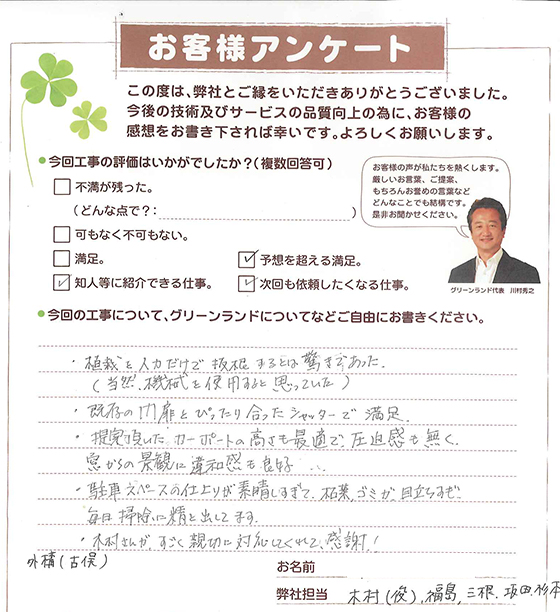 お客様アンケート
この度は、弊社とご縁をいただきありがとうございました。
今後の技術及びサービスの品質向上の為に、お客様の
感想をお書き下されば幸いです。よろしくお願いします。
今回工事の評価はいかがでしたか？（複数回答可）
不満が残った。
（どんな点で？：　）
可もなく不可もない。
満足。
予想を超える満足。
知人等に紹介できる仕事。
次回も依頼したくなる仕事。
お客様の声が私たちを熱くします。
厳しいお言葉、ご提案、
もちろんお誉めの言葉など
どんなことでも結構です。
是非お聞かせください。
グリーンランド代表　川村秀之
今回の工事について、グリーンランドについてなどご自由にお書きください。
・植栽を人力だけで抜根するとは驚きであった
（当然、機械を使用すると思っていた）
・既存の門扉とぴったり合ったシャッターで満足.
・提案頂いたカーポートの高さも最適で、圧迫感も無く.
窓からの景観に違和感も良好...
・駐車スペースの仕上りが素晴しすぎて、枯葉、ゴミが目立ちすぎ.
毎日掃除に精を出してます.
・木村さんが、すごく親切に対応してくれて、感謝！
外構（古俣）
お名前
弊社担当　木村（俊）、福島、三根、坂田、杉本